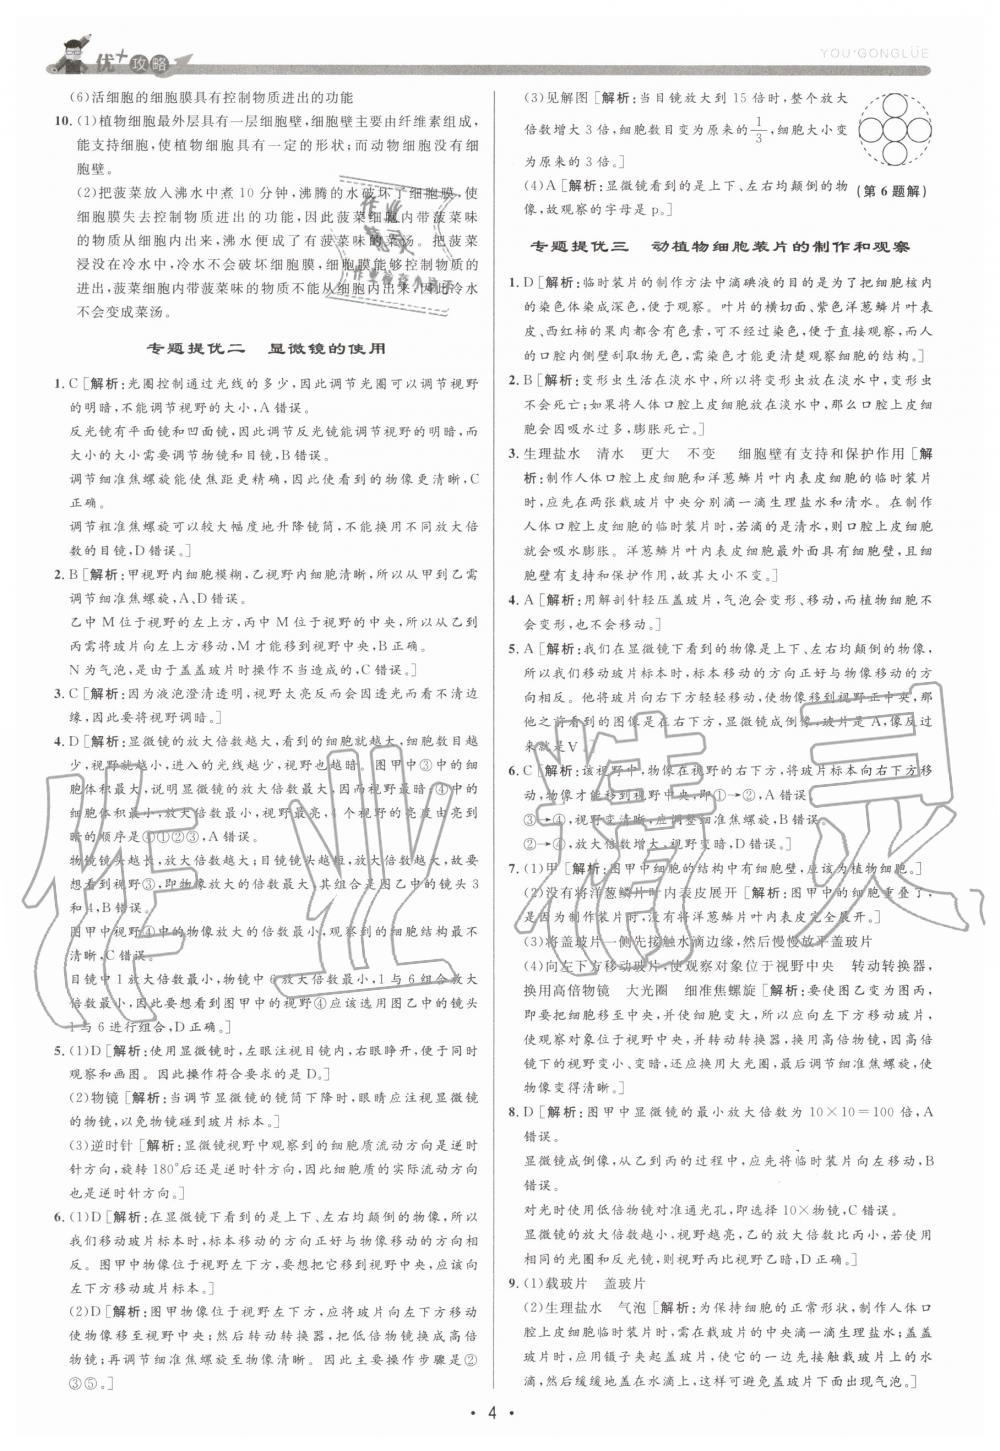 优+攻略
YOU+GONGLÜE
(6)活细胞的细胞膜具有控制物质进出的功能
10. (1)植物细胞最外层具有一层细胞壁,细胞壁主要由纤维素组成,
能支持细胞,使植物细胞具有一定的形状;而动物细胞没有细
胞壁。
(2)把菠菜放入沸水中煮 10 分钟,沸腾的水破坏了细胞膜,使
细胞膜失去控制物质进出的功能,因此菠菜细胞内带菠菜味
的物质从细胞内出来,沸水便成了有菠菜味的菜汤。把菠菜
浸没在冷水中,冷水不会破坏细胞膜,细胞膜能控制物质的
进出,菠菜细胞内带菠菜味的物质不能从细胞内出来,因此冷水
不会变成菜汤。
专题提优二 显微镜的使用
1. C [解析:光圈控制通过光线的多少,因此调节光圈可以调节视野
的明暗,不能调节视野的大小,A 错误。
反光镜有平面镜和凹面镜,因此调节反光镜能调节视野的明暗,而
大小的大小需要调节物镜和目镜,B 错误。
调节细准焦螺旋能使焦距更精确,因此看到的物像更清晰,C
正确。
调节粗准焦螺旋可以较大幅度地升降镜筒,不能换用不同放大倍
数的目镜,D 错误。]
2. B [解析:甲视野内细胞模糊,乙视野内细胞清晰,所以从甲到乙需
调节细准焦螺旋,A、D 错误。
乙中 M 位于视野的左上方,丙中 M 位于视野的中央,所以从乙到
丙需将玻片向左上方移动,M 才能移到视野中央,B 正确。
N 为气泡,是由于盖盖玻片时操作不当造成的,C 错误。]
3. C [解析:因为液泡澄清透明,视野太亮反而会因透光而看不清边
缘,因此要将视野调暗。]
4. D [解析:显微镜的放大倍数越大,看到的细胞就越大,细胞数目越
少,视野就越小,进入的光线越少,视野也越暗。图甲中③中的细
胞体积最大,说明显微镜的放大倍数最大,因而视野最暗;④中的
细胞体积最小,放大倍数最小,视野最亮。4 个视野的亮度由亮到
暗的顺序是④①②③,A 错误。
物镜镜头越长,放大倍数越大;目镜镜头越短,放大倍数越大,故要
想看到视野③,即物像放大的倍数最大,其组合是图乙中的镜头 3
和 4,B 错误。
图甲中视野④中的物像放大的倍数最小,观察到的细胞结构最不
清晰,C 错误。
目镜中 1 放大倍数最小,物镜中 6 放大倍数最小,1 与 6 组合放大
倍数最小,因此要想看到图甲中的视野④应该选用图乙中的镜头
1 与 6 进行组合,D 正确。]
5. (1)D [解析:使用显微镜时,左眼注视目镜,右眼睁开,便于同时
观察和画图。因此操作符合要求的是 D。]
(2)物镜 [解析:当调节显微镜的镜筒下降时,眼睛应注视显微镜
的物镜,以免物镜碰到玻片标本。]
(3)逆时针 [解析:显微镜视野中观察到的细胞质流动方向是逆时
针方向,旋转 180°后还是逆时针方向,因此细胞质的实际流动方向
也是逆时针方向。]
6. (1)D [解析:在显微镜下看到的是上下、左右均颠倒的物像,所以
我们移动玻片标本时,标本移动的方向正好与物像移动的方向相
反。图甲中物像位于视野左下方,要想把它移到视野中央,应该向
左下方移动玻片标本。]
(2)D [解析:图甲物像位于视野左下方,应将玻片向左下方移动
使物像移至视野中央;然后转动转换器,把低倍物镜换成高倍
物镜;再调节细准焦螺旋至物像清晰。因此主要操作步骤是②
③⑤。]
(3)见解图 [解析:当目镜放大到 15 倍时,整个放大
倍数增大 3 倍,细胞数目变为原来的1/3,细胞大小变
为原来的 3 倍。]
(4)A [解析:显微镜看到的是上下、左右均颠倒的物
像,故观察的字母是 p。]
(第 6 题解)
专题提优三 动植物细胞装片的制作和观察
1. D [解析:临时装片的制作方法中滴碘液的目的是为了把细胞核内
的染色体染成深色,便于观察。叶片的横切面、紫色洋葱鳞片叶表
皮、西红柿的果肉都含有色素,可不经过染色,便于直接观察,而人
的口腔内侧壁细胞无色,需染色才能更清楚观察细胞的结构。]
2. B [解析:变形虫生活在淡水中,所以将变形虫放在淡水中,变形虫
不会死亡;如果将人体口腔上皮细胞放在淡水中,那么口腔上皮细
胞会因吸水过多,膨胀死亡。]
3. 生理盐水 清水 更大 不变 细胞壁有支持和保护作用 [解
析:制作人体口腔上皮细胞和洋葱鳞片叶内表皮细胞的临时装片
时,应先在两张载玻片中央分别滴一滴生理盐水和清水。在制作
人体口腔上皮细胞的临时装片时,若滴的是清水,则口腔上皮细胞
就会吸水膨胀。洋葱鳞片叶内表皮细胞最外面具有细胞壁,且细
胞壁有支持和保护作用,故其大小不变。]
4. A [解析:用解剖针轻压盖玻片,气泡会变形、移动,而植物细胞不
会变形,也不会移动。]
5. A [解析:因为在显微镜下看到的物像是上下、左右均颠倒的物像,
所以我们移动玻片标本时,标本移动的方向正好与物像移动的方
向相反。他将玻片向右下方轻轻移动,使物像移到视野正中央,那
他之前看到的图像是在右下方,显微镜成倒像,玻片是 A,像反过
来就是∀。]
6. C [解析:该视野中,物像在视野的右下方,将玻片标本向右下方移
动,物像才能移到视野中央,即①→②,A 错误。
③→④,视野变清晰,应调整细准焦螺旋,B 错误。
②→④,放大倍数增大,视野变暗,D 错误。]
7. (1)甲 [解析:图甲中细胞的结构中有细胞壁,应该为植物细胞。]
(2)没有将洋葱鳞片叶内表皮展开 [解析:图甲中的细胞重叠了,
是因为制作装片时,没有将洋葱鳞片叶内表皮完全展开。]
(3)将盖玻片一侧先接触水滴边缘,然后慢慢放平盖玻片
(4)向左下方移动玻片,使观察对象位于视野中央 转动转换器,
换用高倍物镜 大光圈 细准焦螺旋 [解析:要使图乙变为图丙,
即要将细胞移至中央,且细胞变大,所以应向左下方移动玻片,
使观察对象位于视野中央,并转动转换器,换用高倍物镜,因高倍
镜下的视野变小、变暗,还应换用大光圈,最后调节细准焦螺旋,使
物像变得清晰。]
8. D [解析:图甲中显微镜的最小放大倍数为 10×10=100 倍,A
错误。
显微镜成倒像,从乙到丙的过程中,应先将临时装片向左移动,B
错误。
对光时使用低倍物镜对准通光孔,即选择 10×物镜,C 错误。
显微镜的放大倍数越小,视野越亮,乙的放大倍数比丙小,若使用
相同的光圈和反光镜,则视野丙比视野乙暗,D 正确。]
9. (1)载玻片 盖玻片
(2)生理盐水 气泡 [解析:为保持细胞的正常形状,制作人体口
腔上皮细胞临时装片时,需在载玻片的中央滴一滴生理盐水;盖盖
玻片时,应用镊子夹起盖玻片,使它的一边先接触载玻片上的水
滴,然后缓缓地盖在水滴上,这样可避免盖玻片下面出现气泡。]
· 4 ·
作业精灵